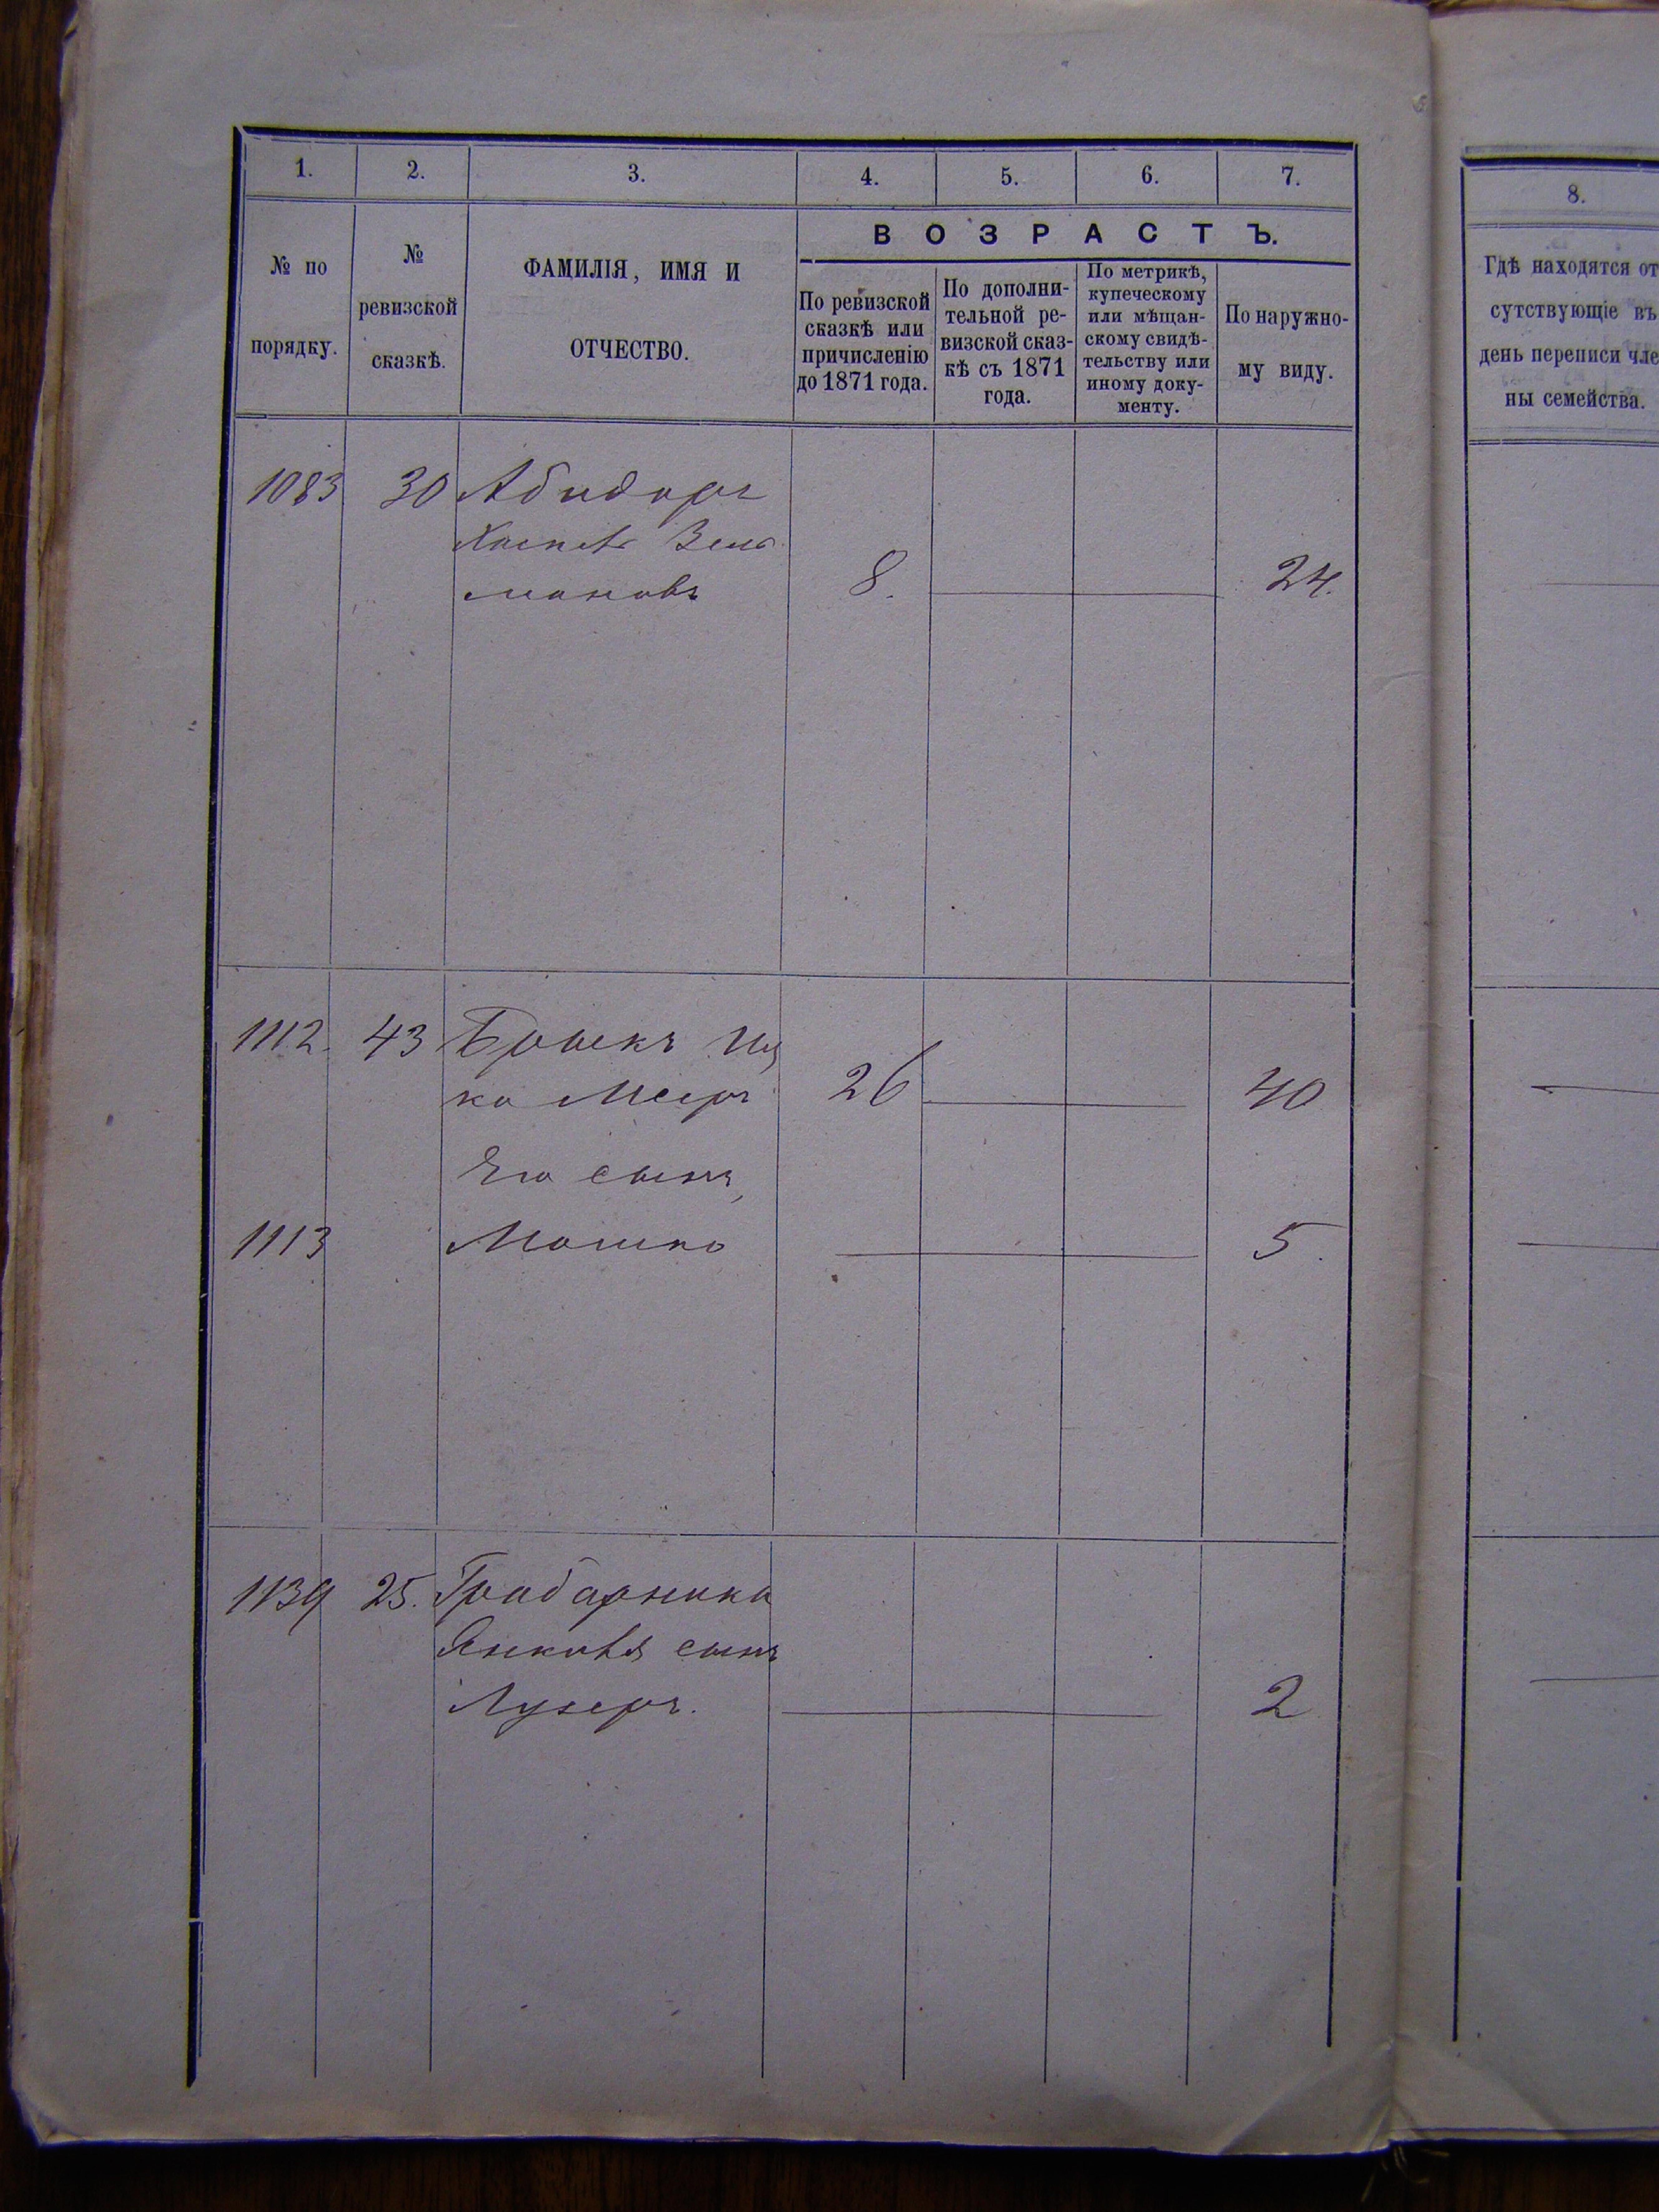 1. 2. 3. 4. 5. 6. 7.
№ по порядку.
№ ревизской сказкѣ.
ФАМИЛІЯ, ИМЯ И
ОТЧЕСТВО.
ВОЗРАСТЪ.
По ревизской
сказкѣ или
причисленію
до 1871 года.
По дополни-
тельной ре-
визской сказ-
кѣ съ 1871
года.
По метрикѣ,
купеческому
или мѣщан-
скому свидѣ-
тельству или
иному доку-
менту.
По наружно-
му виду.
1083 30 Абидоръ
Зель
мановъ 8. 24.
1112. 43 Иц
ко Мееръ 26 40
Его сынъ,
1113 Мошко 5.
1139 25. Грабарника
Янкова сынъ
Лузеръ. 2
8.
Гдѣ находятся от
сутствующіе въ
день переписи чле
ны семейства.